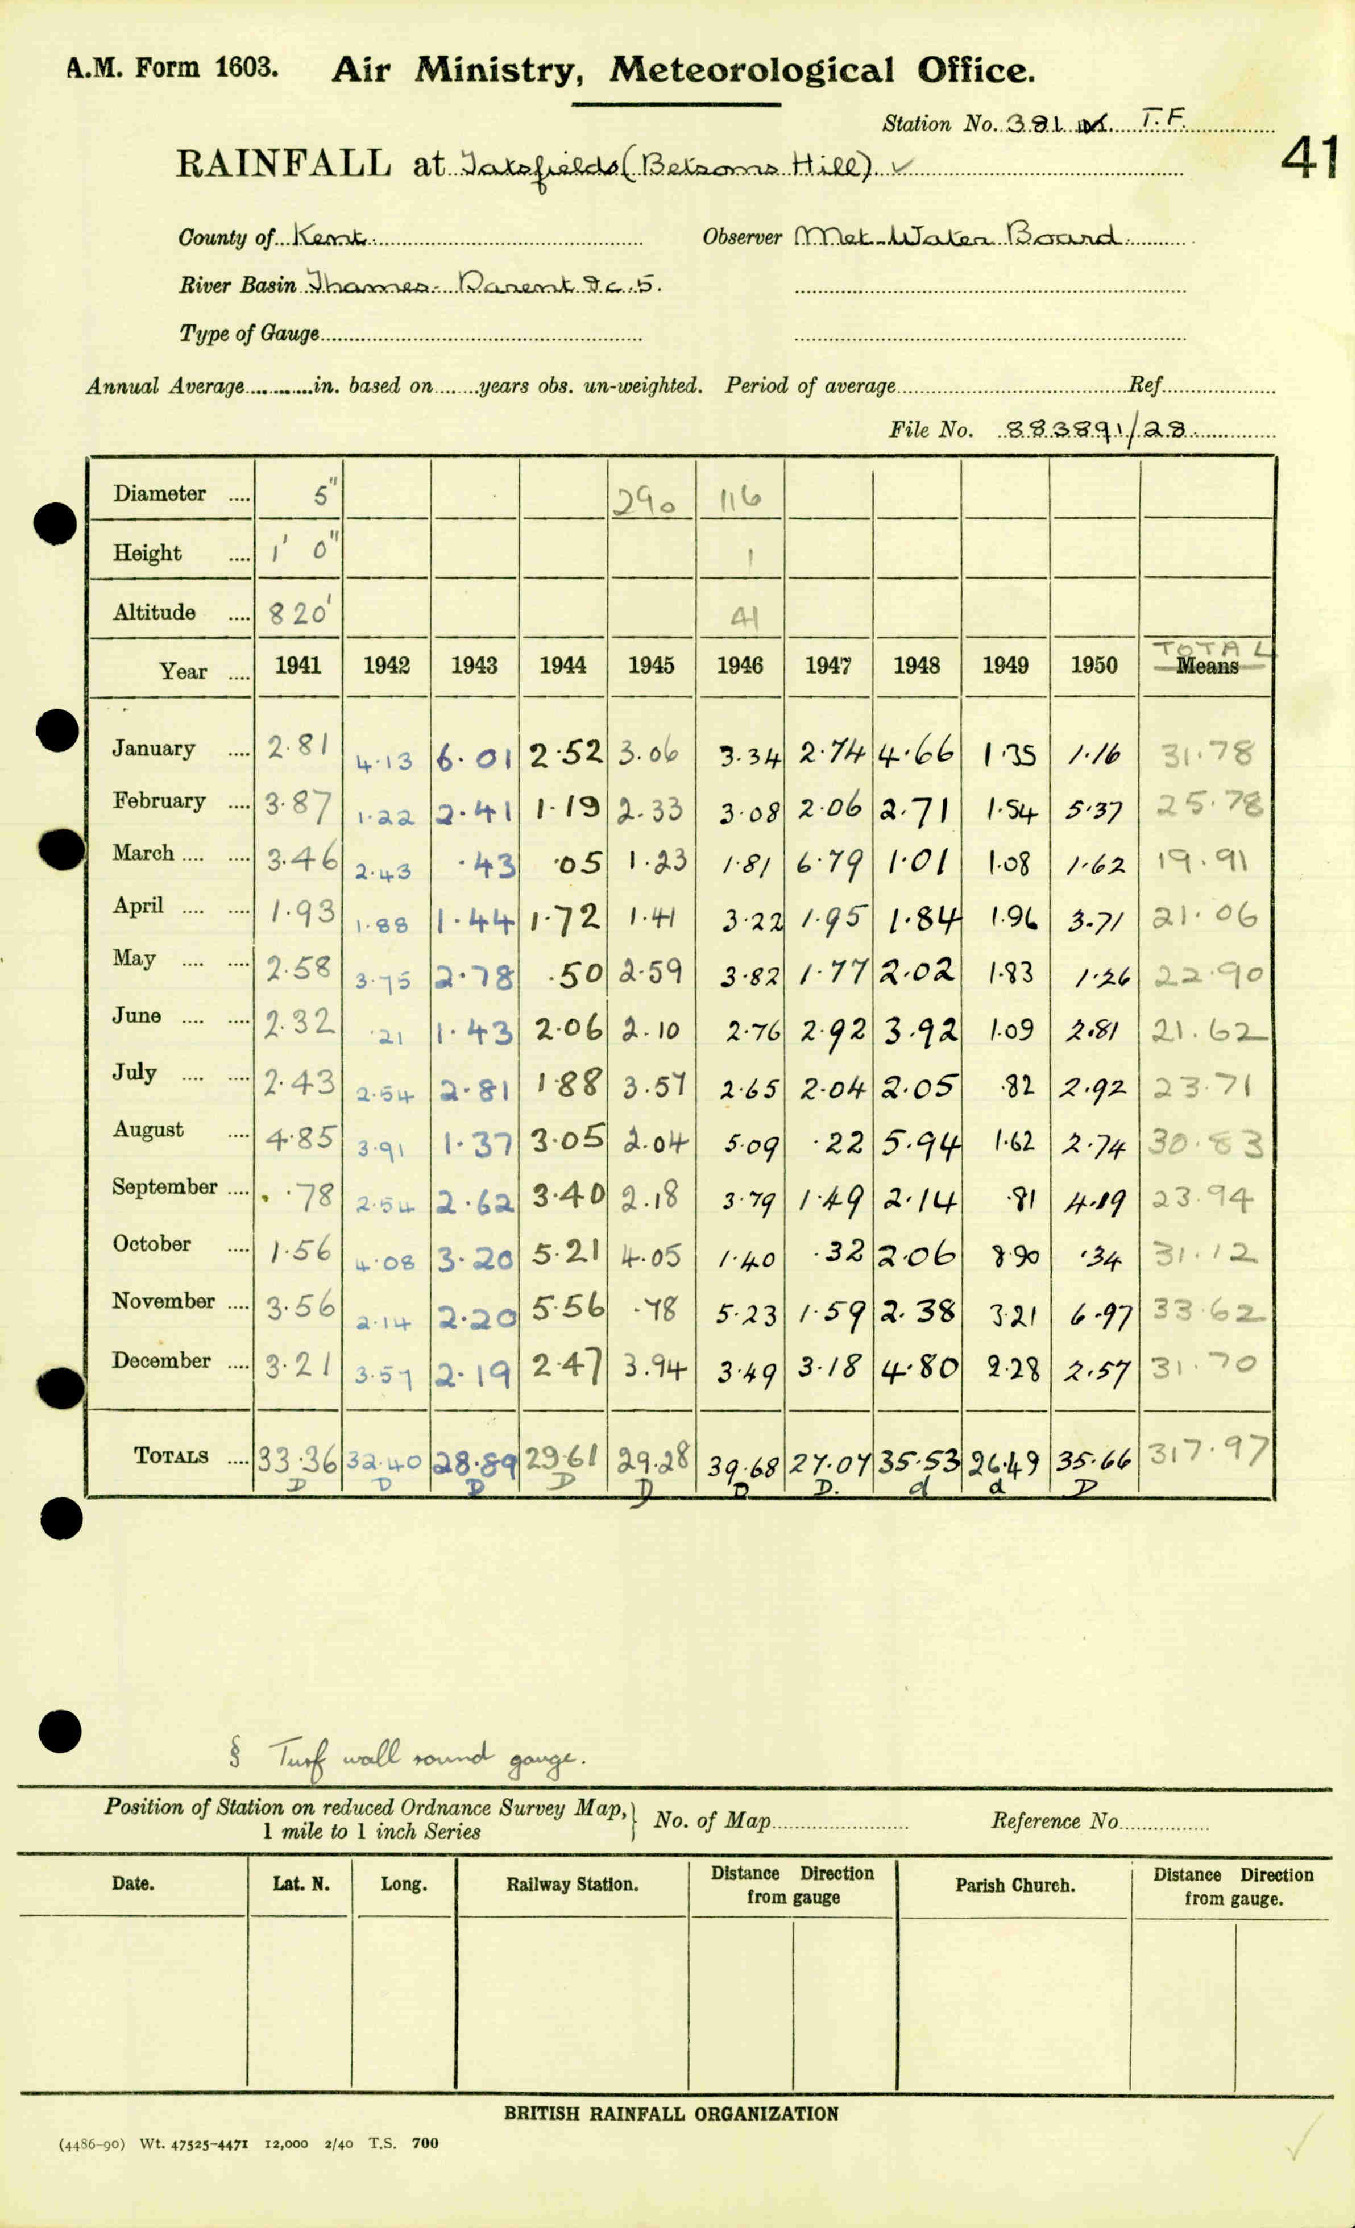 A.M. Form 1603. Air Ministry, Meteorological Office.
Station No. 381 T.F.
41
RAINFALL at Tatsfields (Betsoms Hill) ✓
County of Kent Observer Met. Water Board
River Basin Thames- Darent &c. 5.
Type of Gauge
Annual Average in. based on years obs. un-weighted. Period of average Ref.
File No. 883891/28
Diameter .... 5" 290 116
Height .... 1' 0" 1
Altitude .... 820' 41
Year .... 1941 1942 1943 1944 1945 1946 1947 1948 1949 1950 TOTAL Means
January .... 2.81 4.13 6.01 2.52 3.06 3.34 2.74 4.66 1.35 1.16 31.78
February .... 3.87 1.22 2.41 1.19 2.33 3.08 2.06 2.71 1.54 5.37 25.78
March .... .... 3.46 2.43 .43 .05 1.23 1.81 6.79 1.01 1.08 1.62 19.91
April .... .... 1.93 1.88 1.44 1.72 1.41 3.22 1.95 1.84 1.96 3.71 21.06
May .... .... 2.58 3.75 2.78 .50 2.59 3.82 1.77 2.02 1.83 1.26 22.90
June .... .... 2.32 .21 1.43 2.06 2.10 2.76 2.92 3.92 1.09 2.81 21.62
July .... .... 2.43 2.54 2.81 1.88 3.57 2.65 2.04 2.05 .82 2.92 23.71
August .... 4.85 3.91 1.37 3.05 2.04 5.09 .22 5.94 1.62 2.74 30.83
September .... .78 2.54 2.62 3.40 2.18 3.79 1.49 2.14 .81 4.19 23.94
October .... 1.56 4.08 3.20 5.21 4.05 1.40 .32 2.06 8.90 .34 31.12
November .... 3.56 2.14 2.20 5.56 .78 5.23 1.59 2.38 3.21 6.97 33.62
December .... 3.21 3.57 2.19 2.47 3.94 3.49 3.18 4.80 2.28 2.57 31.70
TOTALS .... 33.36 32.40 28.89 29.61 29.28 39.68 27.07 35.53 26.49 35.66 317.97
D D D D D D D. d d D
§ Turf wall round gauge.
Position of Station on reduced Ordnance Survey Map, 1 mile to 1 inch Series } No. of Map Reference No.
Date. Lat. N. Long. Railway Station. Distance Direction from gauge Parish Church. Distance Direction from gauge.
BRITISH RAINFALL ORGANIZATION
(4486-90) Wt. 47525-4471 12,000 2/40 T.S. 700